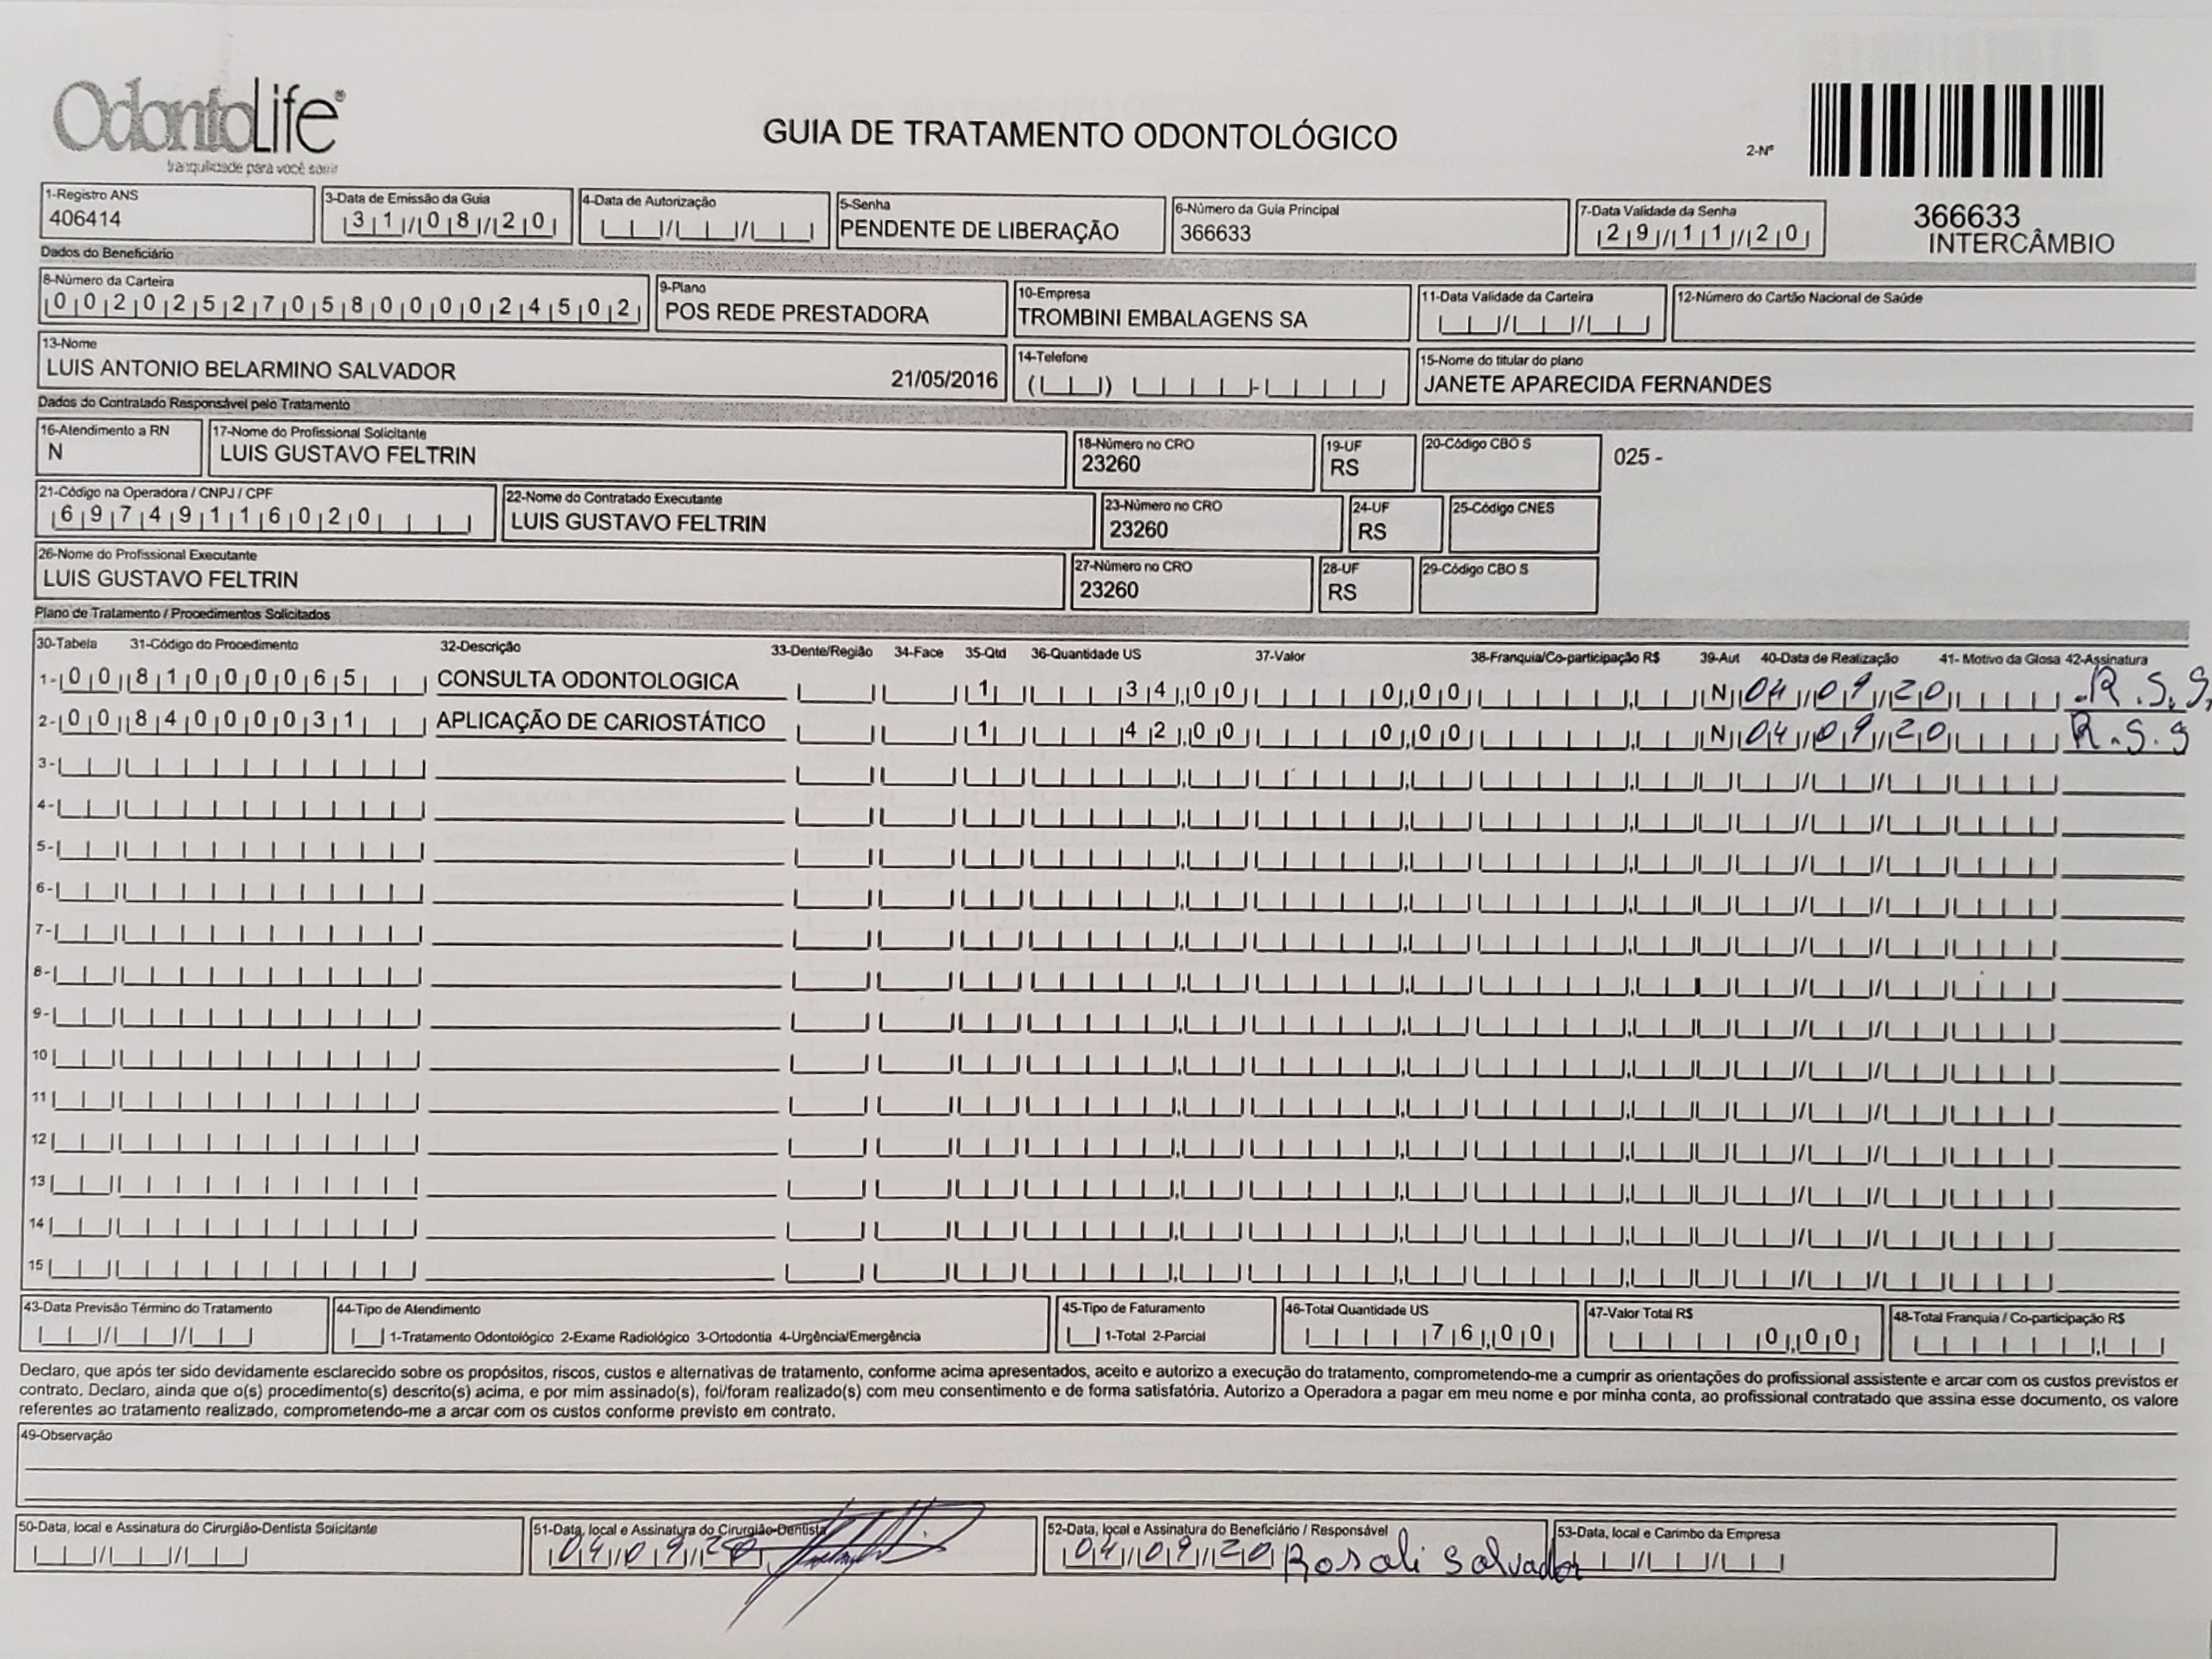 OdontoLife®
tranquilidade para você sorrir
GUIA DE TRATAMENTO ODONTOLÓGICO
2-Nº
366633
INTERCÂMBIO
1-Registro ANS
406414
3-Data de Emissão da Guia
31/08/20
4-Data de Autorização
5-Senha
PENDENTE DE LIBERAÇÃO
6-Número da Guia Principal
366633
7-Data Validade da Senha
29/11/20
Dados do Beneficiário
8-Número da Carteira
00202527058000024502
9-Plano
POS REDE PRESTADORA
10-Empresa
TROMBINI EMBALAGENS SA
11-Data Validade da Carteira
12-Número do Cartão Nacional de Saúde
13-Nome
LUIS ANTONIO BELARMINO SALVADOR 21/05/2016
14-Telefone
15-Nome do titular do plano
JANETE APARECIDA FERNANDES
Dados do Contratado Responsável pelo Tratamento
16-Atendimento a RN
N
17-Nome do Profissional Solicitante
LUIS GUSTAVO FELTRIN
18-Número no CRO
23260
19-UF
RS
20-Código CBO S
025 -
21-Código na Operadora / CNPJ / CPF
69749116020
22-Nome do Contratado Executante
LUIS GUSTAVO FELTRIN
23-Número no CRO
23260
24-UF
RS
25-Código CNES
26-Nome do Profissional Executante
LUIS GUSTAVO FELTRIN
27-Número no CRO
23260
28-UF
RS
29-Código CBO S
Plano de Tratamento / Procedimentos Solicitados
30-Tabela 31-Código do Procedimento 32-Descrição 33-Dente/Região 34-Face 35-Qtd 36-Quantidade US 37-Valor 38-Franquia/Co-participação R$ 39-Aut 40-Data de Realização 41- Motivo da Glosa 42-Assinatura
1- 00 81000065 CONSULTA ODONTOLOGICA 1 34,00 0,00 N 04/09/20 R.S.S.
2- 00 84000031 APLICAÇÃO DE CARIOSTÁTICO 1 42,00 0,00 N 04/09/20 R.S.S
3-
4-
5-
6-
7-
8-
9-
10
11
12
13
14
15
43-Data Previsão Término do Tratamento
44-Tipo de Atendimento
1-Tratamento Odontológico 2-Exame Radiológico 3-Ortodontia 4-Urgência/Emergência
45-Tipo de Faturamento
1-Total 2-Parcial
46-Total Quantidade US
76,00
47-Valor Total R$
0,00
48-Total Franquia / Co-participação R$
Declaro, que após ter sido devidamente esclarecido sobre os propósitos, riscos, custos e alternativas de tratamento, conforme acima apresentados, aceito e autorizo a execução do tratamento, comprometendo-me a cumprir as orientações do profissional assistente e arcar com os custos previstos er
contrato. Declaro, ainda que o(s) procedimento(s) descrito(s) acima, e por mim assinado(s), foi/foram realizado(s) com meu consentimento e de forma satisfatória. Autorizo a Operadora a pagar em meu nome e por minha conta, ao profissional contratado que assina esse documento, os valore
referentes ao tratamento realizado, comprometendo-me a arcar com os custos conforme previsto em contrato.
49-Observação
50-Data, local e Assinatura do Cirurgião-Dentista Solicitante
51-Data, local e Assinatura do Cirurgião-Dentista
04/09/20
52-Data, local e Assinatura do Beneficiário / Responsável
04/09/20 Rosali Salvador
53-Data, local e Carimbo da Empresa